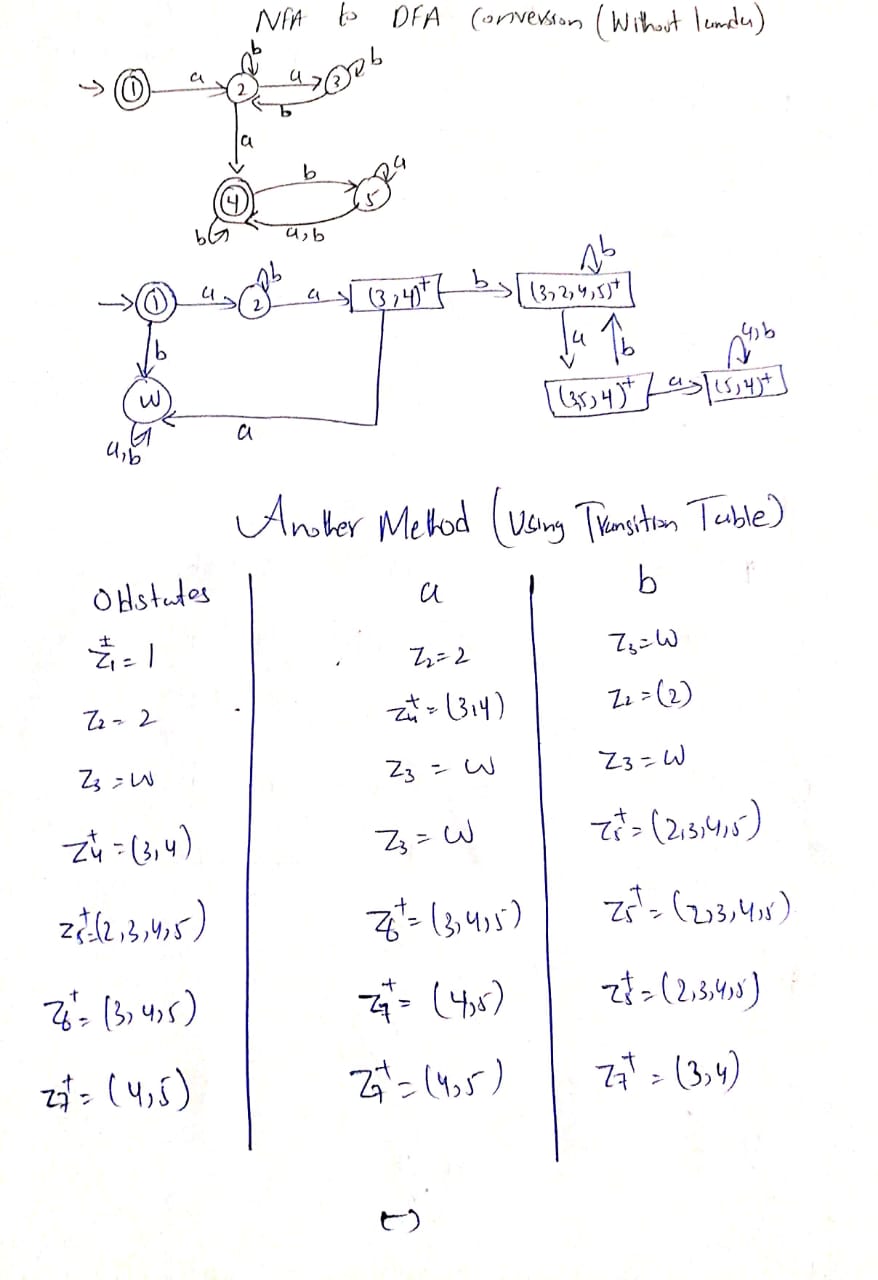 NFA to DFA Conversion (Without lamda)
b
a a b
→ 1 2 3
b
a
b a
4 5
b a,b
b b
a a b
→ 1 2 (3,4)+ (3,2,4,5)+
b a b a,b
W (3,5,4)+ a (5,4)+
a
a,b
Another Method (Using Transition Table)
Oldstates a b
Z1± = 1 Z2 = 2 Z3 = W
Z2 = 2 Z4+ = (3,4) Z2 = (2)
Z3 = W Z3 = W Z3 = W
Z4+ = (3,4) Z3 = W Z5+ = (2,3,4,5)
Z5+ = (2,3,4,5) Z6+ = (3,4,5) Z5+ = (2,3,4,5)
Z6+ = (3,4,5) Z7+ = (4,5) Z5+ = (2,3,4,5)
Z7+ = (4,5) Z7+ = (4,5) Z7+ = (3,4)